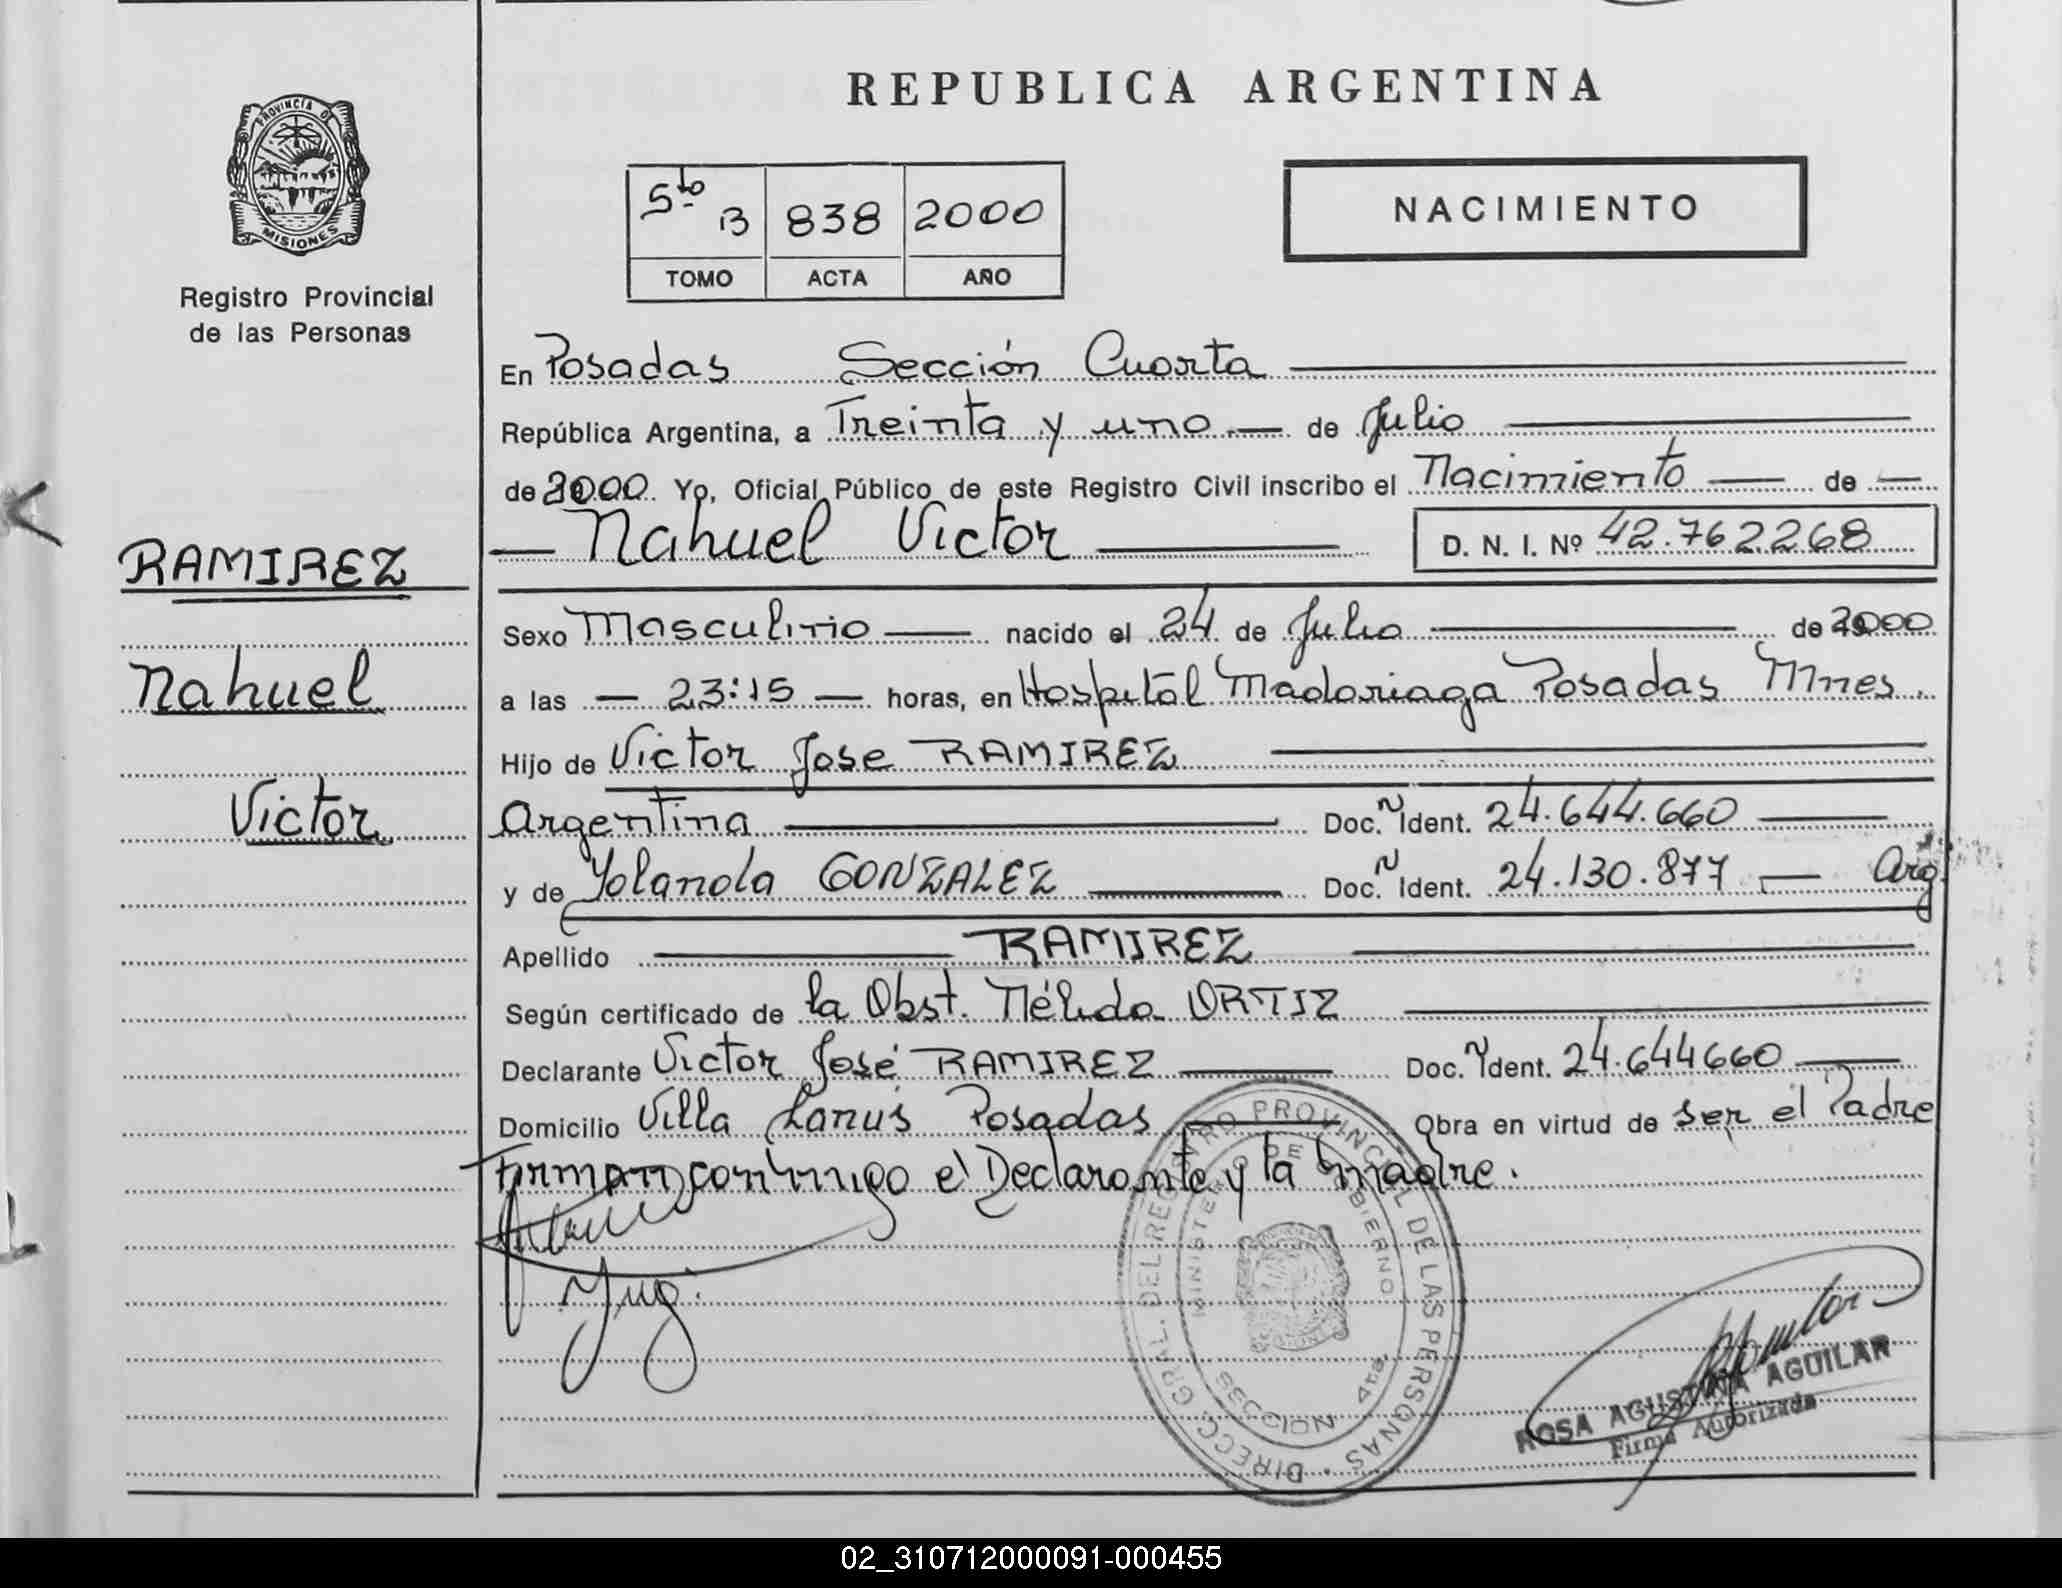 REPUBLICA ARGENTINA
PROVINCIA DE
MISIONES
Registro Provincial
de las Personas
5to B 838 2000
TOMO ACTA AÑO
NACIMIENTO
En Posadas Sección Cuarta
República Argentina, a Treinta y uno de Julio
de 2000. Yo, Oficial Público de este Registro Civil inscribo el Nacimiento de
Nahuel Victor D. N. I. Nº 42.762268
RAMIREZ
Nahuel
Victor
Sexo Masculino nacido el 24 de Julio de 2000
a las 23:15 horas, en Hospital Madariaga Posadas Mnes.
Hijo de Victor Jose RAMIREZ
Argentina Doc. Ident. 24.644.660
y de Yolanda GONZALEZ Doc. Ident. 24.130.877 Arg.
Apellido RAMIREZ
Según certificado de la Obst. Nélida ORTIZ
Declarante Victor José RAMIREZ Doc. Ident. 24.644660
Domicilio Villa Lanús Posadas Obra en virtud de ser el Padre
Firman conmigo el Declarante y la madre.
DIRECC. GRAL. DEL REGISTRO PROVINCIAL DE LAS PERSONAS
MINISTERIO DE GOBIERNO
SECCION 4ta.
ROSA AGUSTINA AGUILAR
Firma Autorizada
02_310712000091-000455